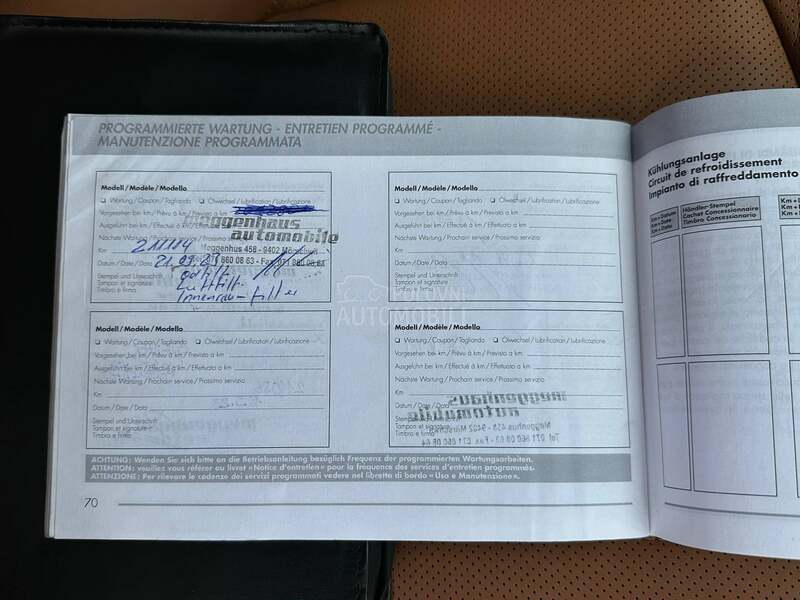 PROGRAMMIERTE WARTUNG - ENTRETIEN PROGRAMMÉ -
MANUTENZIONE PROGRAMMATA
Modell / Modèle / Modello
Wartung / Coupon / Tagliando Ölwechsel / Lubrification / Lubrificazione
Vorgesehen bei km / Prévu à km / Previsto a km
meggenhaus
Ausgeführt bei km / Effectué à km / Effettuato a km
automobile
Nächste Wartung / Prochain service / Prossimo servizio
Meggenhus 458 - 9402 Mörschwil
Km 211114
Tel 071 860 08 63 - Fax 071 860 08 64
Datum / Date / Data 21.09.
Stempel und Unterschrift
Tampon et signature
Timbro e firma
Ölfilt.
Luftfilt.
Innenraumfilter
Modell / Modèle / Modello
Wartung / Coupon / Tagliando Ölwechsel / Lubrification / Lubrificazione
Vorgesehen bei km / Prévu à km / Previsto a km
Ausgeführt bei km / Effectué à km / Effettuato a km
Nächste Wartung / Prochain service / Prossimo servizio
Km
Datum / Date / Data
Stempel und Unterschrift
Tampon et signature
Timbro e firma
AUTOMOBILI
Modell / Modèle / Modello
Wartung / Coupon / Tagliando Ölwechsel / Lubrification / Lubrificazione
Vorgesehen bei km / Prévu à km / Previsto a km
Ausgeführt bei km / Effectué à km / Effettuato a km
Nächste Wartung / Prochain service / Prossimo servizio
Km
Datum / Date / Data
Stempel und Unterschrift
Tampon et signature
Timbro e firma
Modell / Modèle / Modello
Wartung / Coupon / Tagliando Ölwechsel / Lubrification / Lubrificazione
Vorgesehen bei km / Prévu à km / Previsto a km
Ausgeführt bei km / Effectué à km / Effettuato a km
Nächste Wartung / Prochain service / Prossimo servizio
Km
Datum / Date / Data
meggenhaus
automobile
Stempel und Unterschrift
Tampon et signature
Timbro e firma
Meggenhus 458 - 9402 Mörschwil
Tel 071 860 08 63 - Fax 071 860 08 64
ACHTUNG: Wenden Sie sich bitte an die Betriebsanleitung bezüglich Frequenz der programmierten Wartungsarbeiten.
ATTENTION: veuillez vous référer au livret «Notice d'entretien» pour la fréquence des services d'entretien programmés.
ATTENZIONE: Per rilevare le cadenze dei servizi programmati vedere nel libretto di bordo «Uso e Manutenzione».
70
Kühlungsanlage
Circuit de refroidissement
Impianto di raffreddamento
Km + Datum
Km + Date
Km + Data
Händler-Stempel
Cachet Concessionnaire
Timbro Concessionario